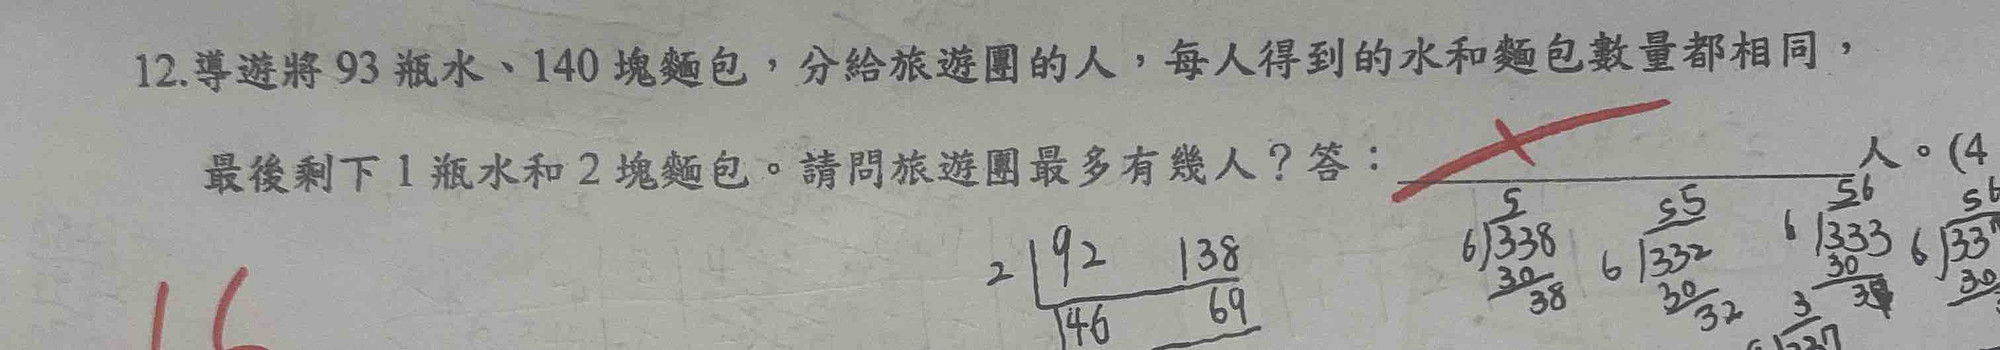 12.導遊將 93 瓶水、140 塊麵包,分給旅遊團的人,每人得到的水和麵包數量都相同,
最後剩下 1 瓶水和 2 塊麵包。請問旅遊團最多有幾人?答: 人。(4
2 92 138
46 69
5
6 338
30
38
55
6 332
30
32
56
6 333
30
56
6 33
30
3
16